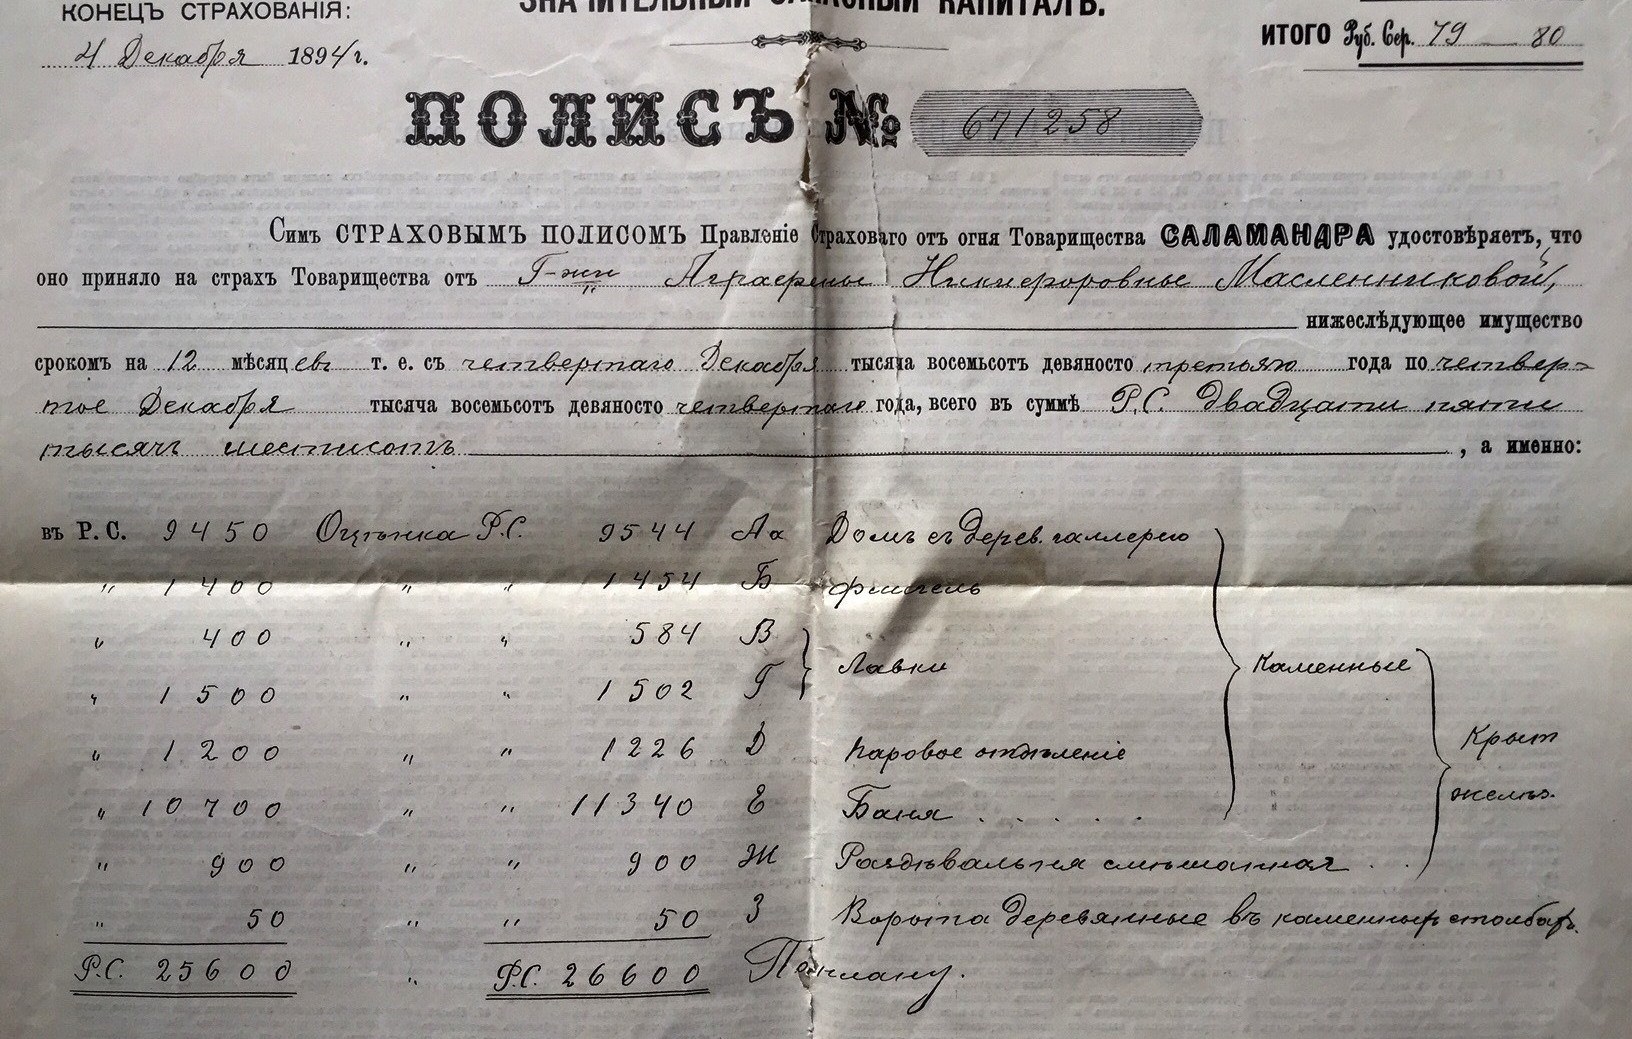 КОНЕЦЪ СТРАХОВАНІЯ:
ЗНАЧИТЕЛЬНЫЙ ЗАПАСНЫЙ КАПИТАЛЪ.
4 Декабря 1894 г.
ИТОГО Руб. Сер. 79 — 80
ПОЛИСЪ № 671258
Симъ СТРАХОВЫМЪ ПОЛИСОМЪ Правленіе Страховаго отъ огня Товарищества САЛАМАНДРА удостовѣряетъ, что
оно приняло на страхъ Товарищества отъ Г-жи Аграфены Никифоровны Масленниковой,
нижеслѣдующее имущество
срокомъ на 12 мѣсяцевъ т. е. съ четвертаго Декабря тысяча восемьсотъ девяносто третьяго года по четвер-
тое Декабря тысяча восемьсотъ девяносто четвертаго года, всего въ суммѣ Р.С. Двадцати пяти
тысячъ шестисотъ, а именно:
въ Р. С. 9450 Оцѣнка Р.С. 9544 Аа Домъ съ дерев. галлереею
" 1400 " " 1454 Б Флигель
" 400 " " 584 В
Лавки Каменные
" 1500 " " 1502 Г
Крыт
" 1200 " " 1226 Д Паровое отдѣленіе
желѣз.
" 10700 " " 11340 Е Баня . . . . .
" 900 " " 900 Ж Раздѣвальная смѣшанная . .
" 50 " " 50 З Ворота деревянные въ каменныхъ столбахъ.
Р.С. 25600 " Р.С. 26600 По плану.